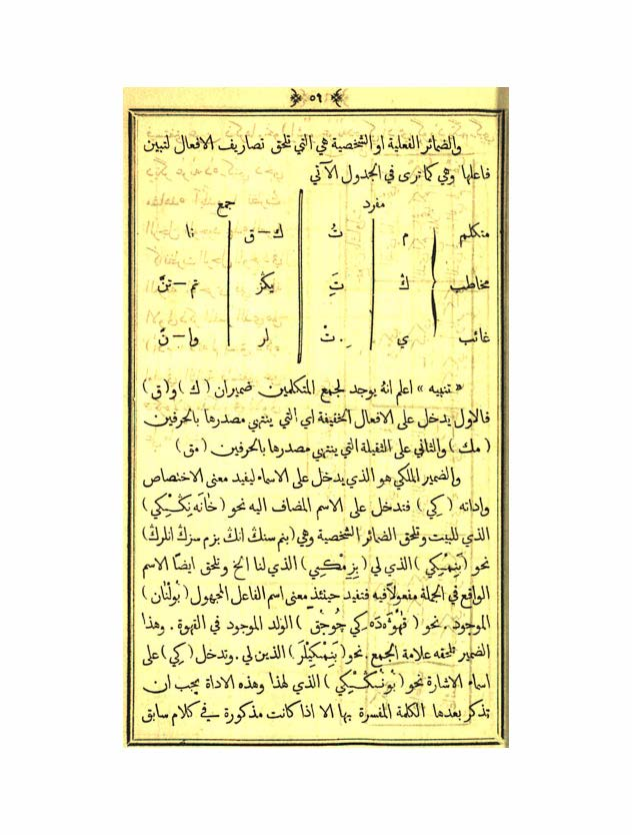 ٥٩
والضمائر الفعلية او الشخصية هي التي تلحق تصاريف الافعال لتبين
فاعلها وهي كما ترى في الجدول الآتي
مفرد جمع
متكلم م تُ ك — ق نا
مخاطب ڭ تَِ يكز تم — تنَّ
غائب ي .ِ تْ لر وا — نَ
« تنبيه » اعلم انهُ يوجد لجمع المتكلمين ضميران ( ك ) و( ق )
فالاول يدخل على الافعال الخفيفة اي التي ينتهي مصدرها بالحرفين
( مك ) والثاني على الثقيلة التي ينتهي مصدرها بالحرفين ( مق )
والضمير الملكي هو الذي يدخل على الاسماء ليفيد معنى الاختصاص
واداته ( كِي ) فتدخل على الاسم المضاف اليه نحو ( خَانَه نِڭْكِي )
الذي للبيت وتلحق الضمائر الشخصية وهي ( بنم سنڭ انڭ بزم سزڭ انلرڭ )
نحو ( بَنِمْكِي ) الذي لي ( بِزِمْكِي ) الذي لنا الخ وتلحق ايضًا الاسم
الواقع في الجملة مفعولاً فيه فتفيد حينئذٍ معنى اسم الفاعل المجهول ( بُولْنَان )
الموجود . نحو ( قَهْوَه دَه كِي جُوجُقْ ) الولد الموجود في القهوة . وهذا
الضمير تلحقه علامة الجمع . نحو ( بَنِمْكِيلَرْ ) الذين لي . وتدخل ( كِي ) على
اسماء الاشارة نحو ( بُونُڭْكِي ) الذي لهذا وهذه الاداة يجب ان
تذكر بعدها الكلمة المفسرة بها الا اذا كانت مذكورة في كلام سابق